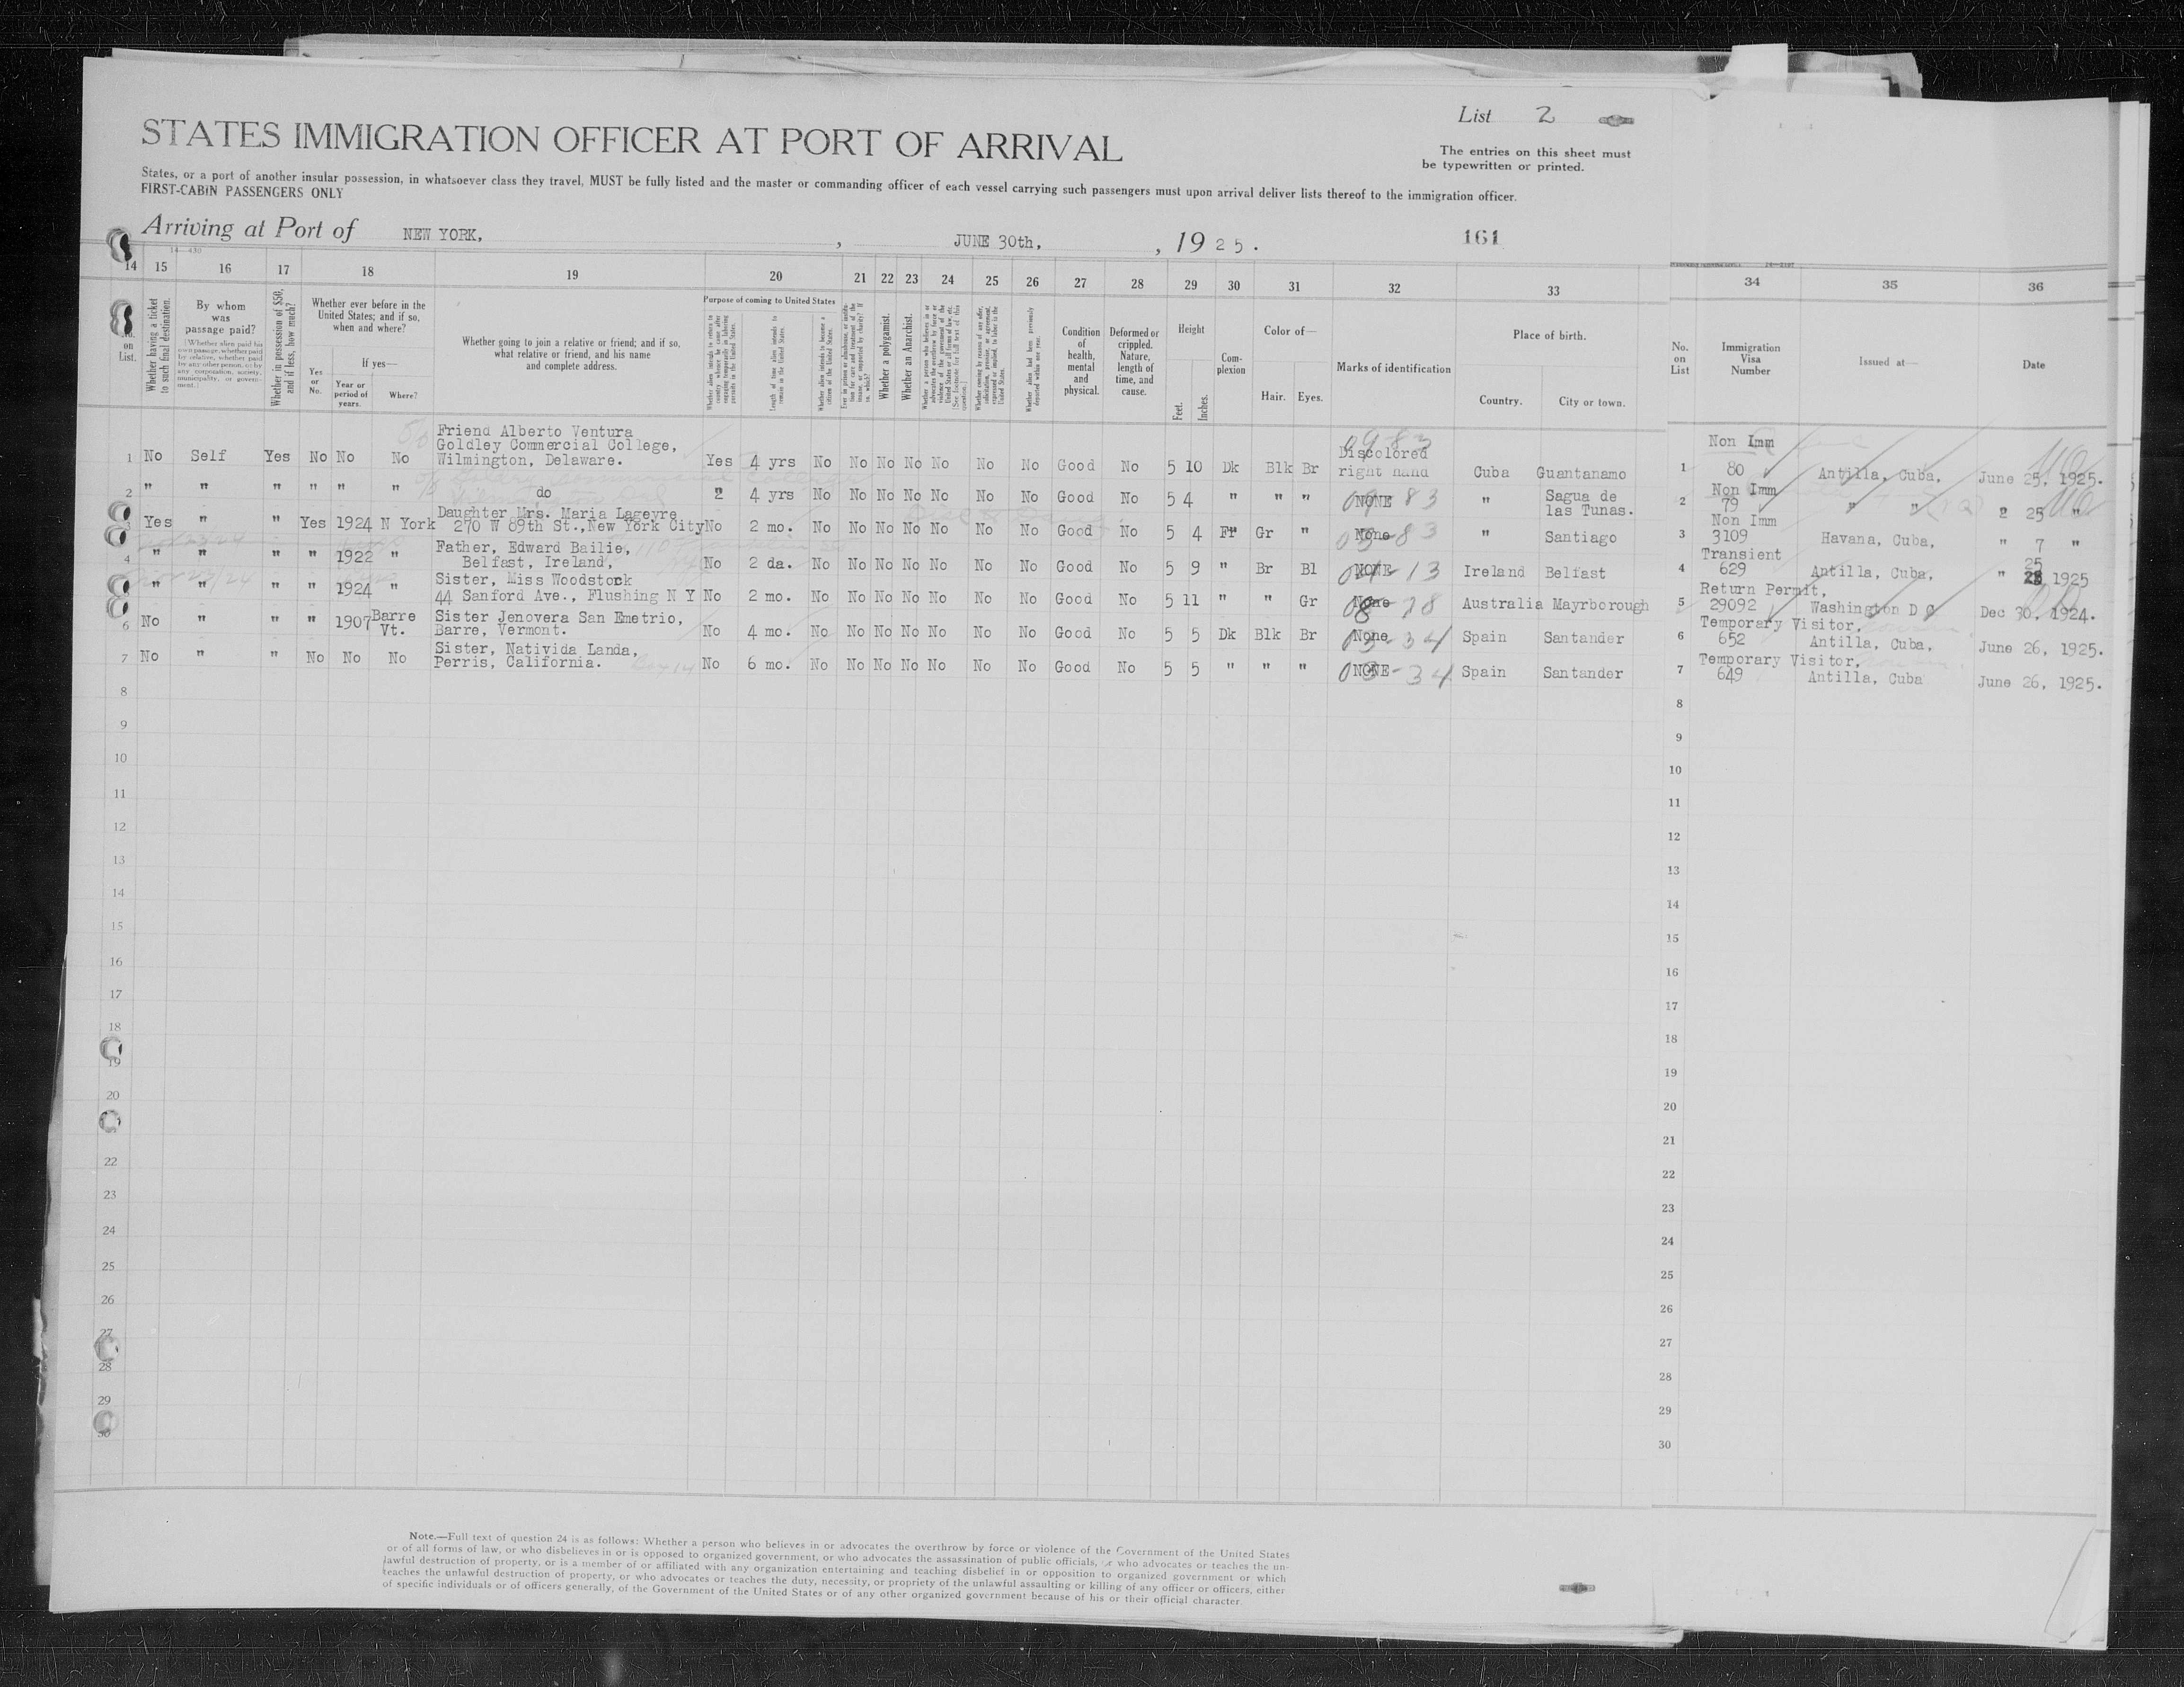 List 2
STATES IMMIGRATION OFFICER AT PORT OF ARRIVAL
The entries on this sheet must
be typewritten or printed.
States, or a port of another insular possession, in whatsoever class they travel, MUST be fully listed and the master or commanding officer of each vessel carrying such passengers must upon arrival deliver lists thereof to the immigration officer.
FIRST-CABIN PASSENGERS ONLY
Arriving at Port of NEW YORK, , JUNE 30th, , 1925. 161
14 15 16 17 18 19 20 21 22 23 24 25 26 27 28 29 30 31 32 33 34 35 36
No. on List.
Whether having a ticket to such final destination.
By whom was passage paid?
(Whether alien paid his own passage, whether paid by relative, whether paid by any other person, or by any corporation, society, municipality, or government.)
Whether in possession of $50, and if less, how much?
Whether ever before in the United States; and if so, when and where?
Yes or No.
If yes—
Year or period of years.
Where?
Whether going to join a relative or friend; and if so, what relative or friend, and his name and complete address.
Purpose of coming to United States
Length of time alien intends to remain in the United States.
Whether alien intends to become a citizen of the United States.
Whether a polygamist.
Whether an Anarchist.
Condition of health, mental and physical.
Deformed or crippled. Nature, length of time, and cause.
Height
Feet. Inches.
Complexion
Color of—
Hair. Eyes.
Marks of identification
Place of birth.
Country. City or town.
No. on List
Immigration Visa Number
Issued at—
Date
Friend Alberto Ventura
Goldley Commercial College,
1 No Self Yes No No No Wilmington, Delaware. Yes 4 yrs No No No No No No No Good No 5 10 Dk Blk Br Discolored right hand 09 83 Cuba Guantanamo 1 Non Imm 80 Antilla, Cuba, June 25, 1925.
2 " " " " " " do " 4 yrs No No No No No No No Good No 5 4 " " " NONE 83 " Sagua de las Tunas. 2 Non Imm 79 " " " 25 "
Daughter Mrs. Maria Lageyre
3 Yes " " Yes 1924 N York 270 W 89th St., New York City No 2 mo. No No No No No No No Good No 5 4 Fr Gr " None 83 " Santiago 3 Non Imm 3109 Havana, Cuba, " 7 "
Father, Edward Bailie,
4 " " " " 1922 " Belfast, Ireland, No 2 da. No No No No No No No Good No 5 9 " Br Bl NONE 13 Ireland Belfast 4 Transient 629 Antilla, Cuba, " 25 1925
Sister, Miss Woodstock
" " " " 1924 " 44 Sanford Ave., Flushing N Y No 2 mo. No No No No No No No Good No 5 11 " " Gr None Australia Mayrborough 5 Return Permit, 29092 Washington D C Dec 30, 1924.
Sister Jenovera San Emetrio,
6 No " " " 1907 Barre Vt. Barre, Vermont. No 4 mo. No No No No No No No Good No 5 5 Dk Blk Br None 34 Spain Santander 6 Temporary Visitor, 652 Antilla, Cuba, June 26, 1925.
Sister, Nativida Landa,
7 No " " No No No Perris, California. Box 14 No 6 mo. No No No No No No No Good No 5 5 " " " NONE 34 Spain Santander 7 Temporary Visitor, 649 Antilla, Cuba June 26, 1925.
8 8
9 9
10 10
11 11
12 12
13 13
14 14
15 15
16 16
17 17
18 18
19 19
20 20
21
22 22
23 23
24 24
25 25
26 26
27 27
28 28
29 29
30 30
Note.—Full text of question 24 is as follows: Whether a person who believes in or advocates the overthrow by force or violence of the Government of the United States
or of all forms of law, or who disbelieves in or is opposed to organized government, or who advocates the assassination of public officials, or who advocates or teaches the un-
lawful destruction of property, or is a member of or affiliated with any organization entertaining and teaching disbelief in or opposition to organized government or which
teaches the unlawful destruction of property, or who advocates or teaches the duty, necessity, or propriety of the unlawful assaulting or killing of any officer or officers, either
of specific individuals or of officers generally, of the Government of the United States or of any other organized government because of his or their official character.